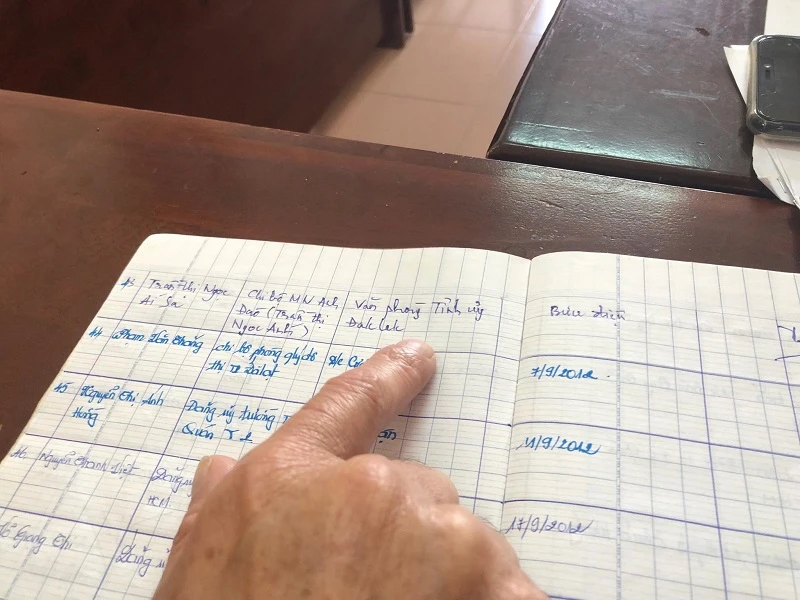 43 Trần thị Ngọc Ái Sa Chi bộ MN Anh Đào (Trần thị Ngọc Ánh) Văn phòng Tỉnh ủy Đăk Lăk Bưu điện
44 Phạm Văn Thắng chi bộ phòng qlý đô thị TP Đà lạt 7/9/2012.
45 Nguyễn Thị Ánh Hồng Đảng uỷ 11/9/2012
46 Nguyễn Thanh Việt Đảng uỷ HCM 17/9/2012
Đỗ Giang Chi Đảng